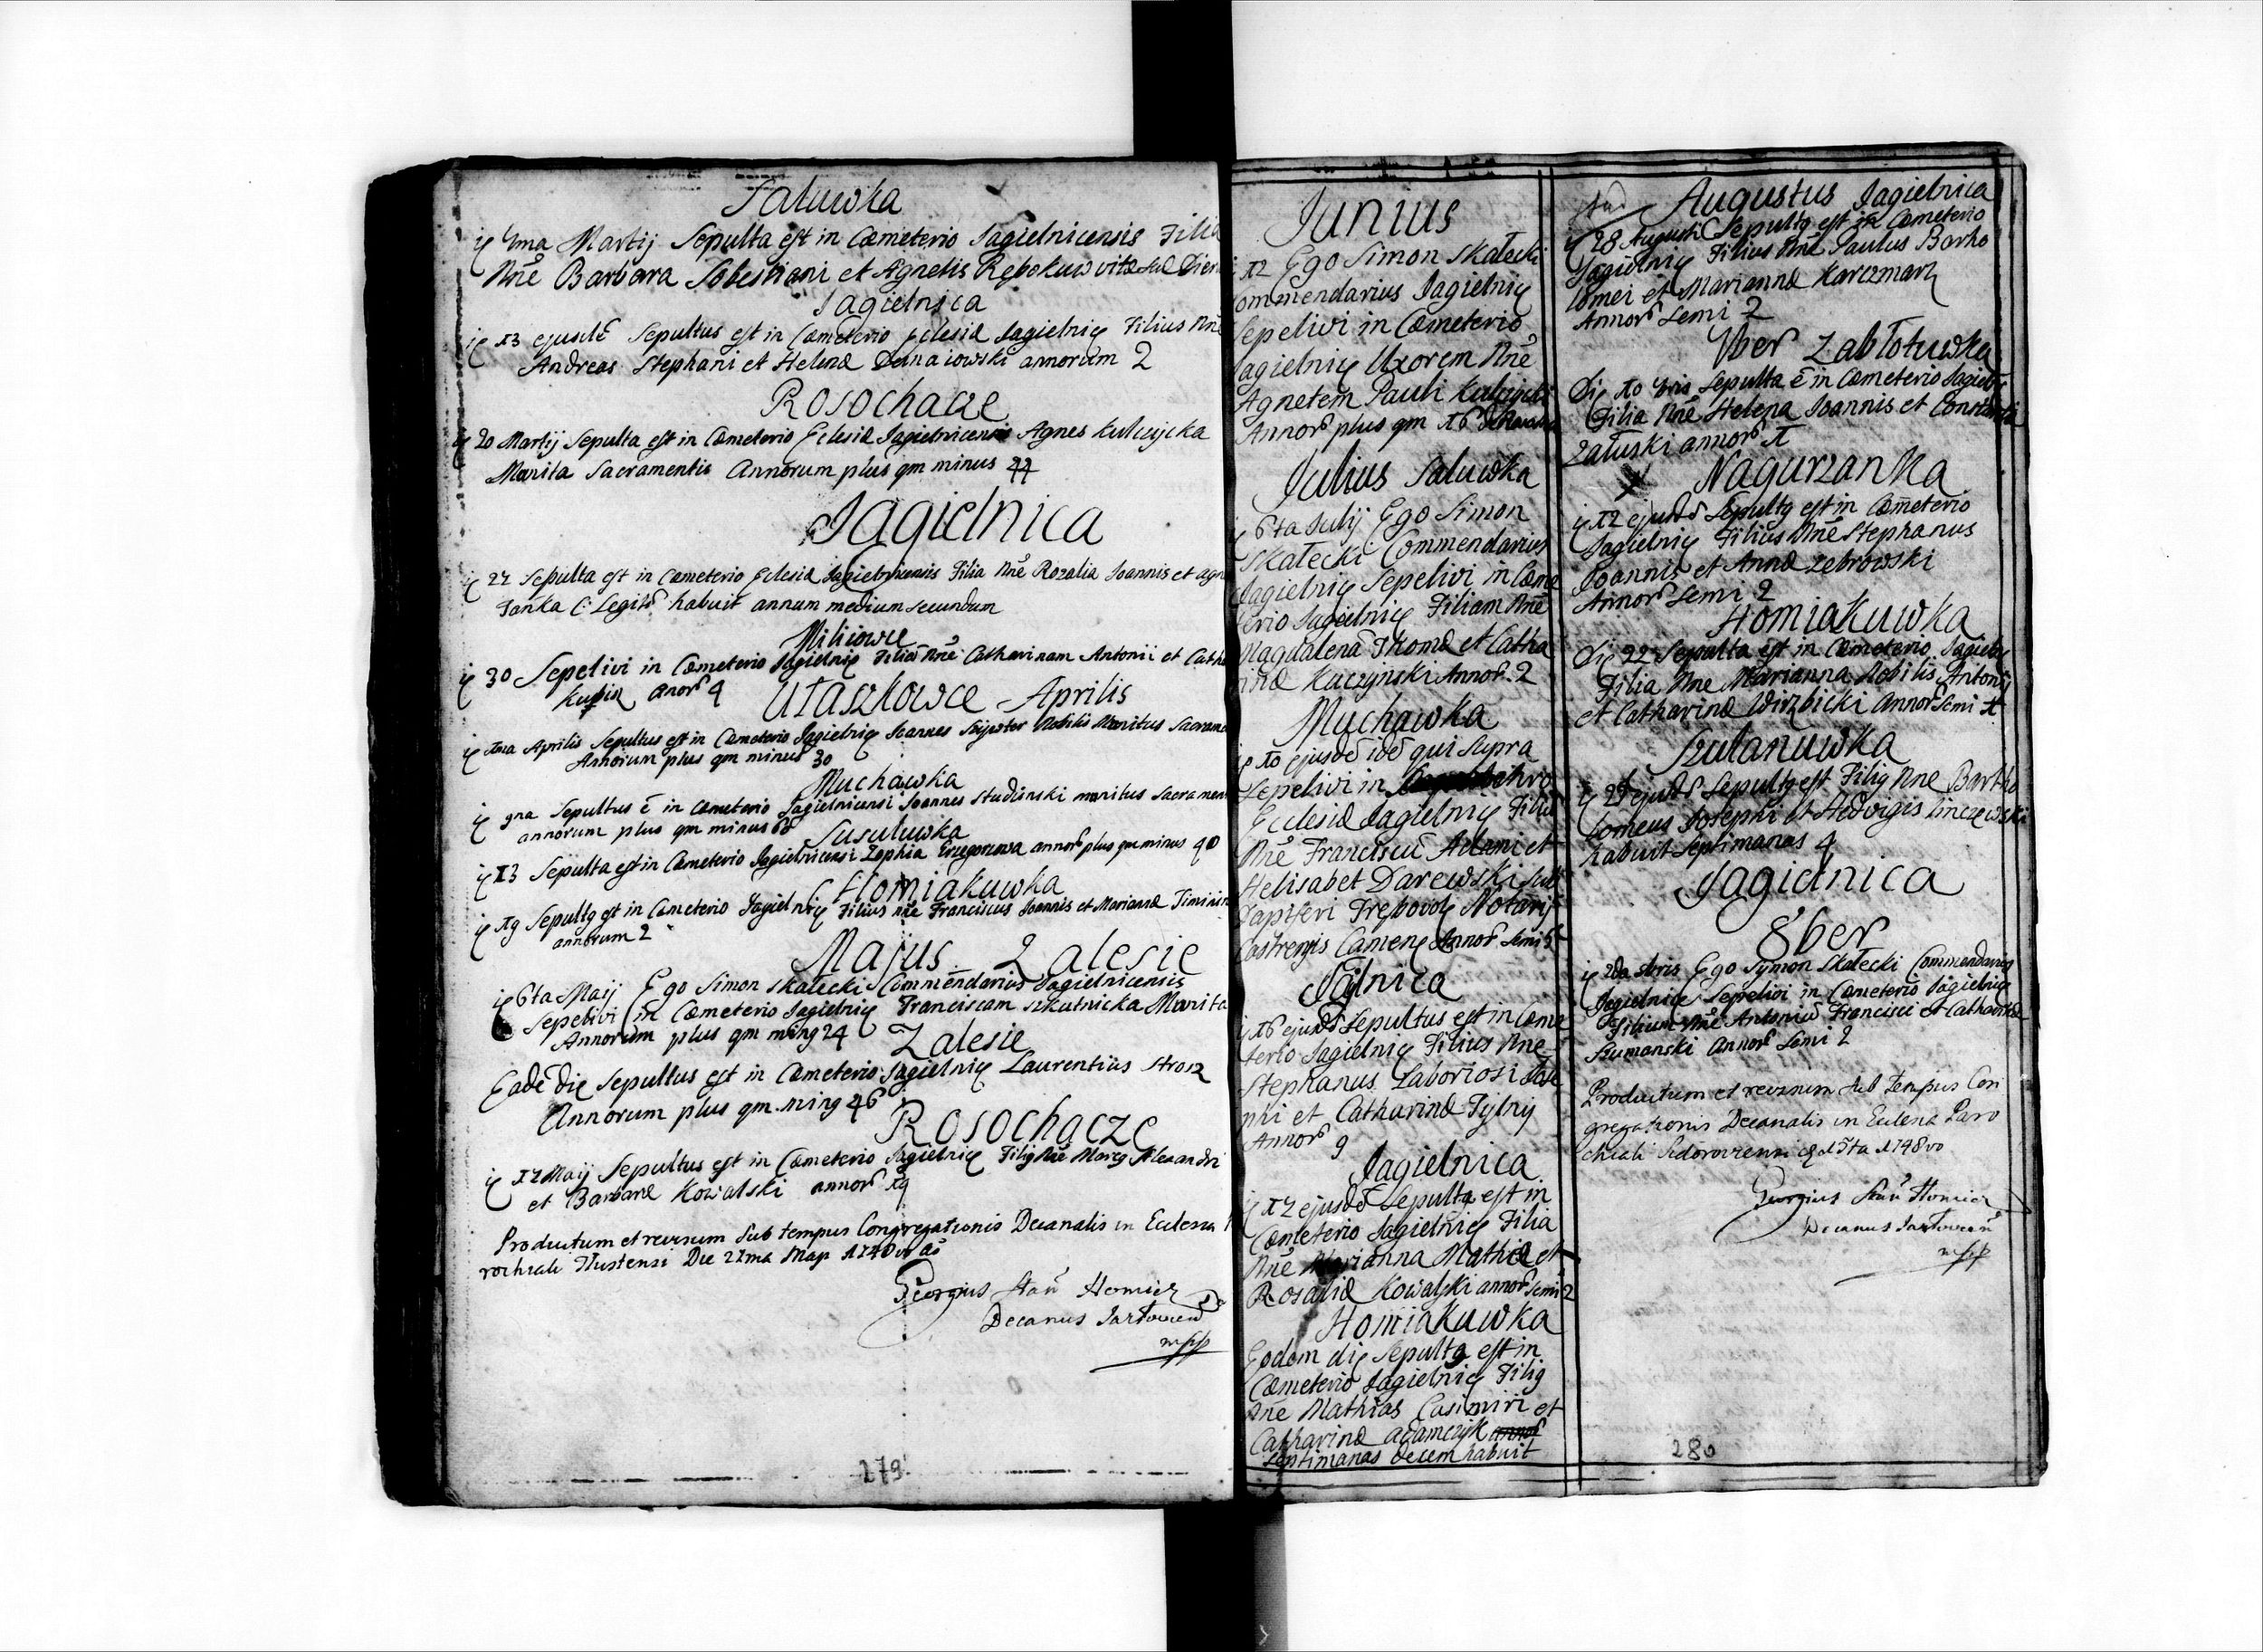 Saluwka
ię 4ma Martij Sepulta est in Cæmeterio Jagielnicensis Filia
Nñe Barbara Sobestiani et Agnetis
Jagielnica
ię 13 ejusdē Sepultus est in Cæmeterio Eclesiæ Jagielnicę Filius Nñe
Andreas Stephani et Helenæ annorum 2
Rosochacze
ię 20 Martij Sepulta est in Cæmeterio Eclesiæ Jagielnicensis Agnes Kulczycka
Munita Sacramentis Annorum plus qm minus 44
Jagielnica
ię 22 Sepulta est in Cæmeterio Eclesiæ Jagielnicensis Filia Nñe Rozalia Joannis et Agn
Janka C: Legitõ habuit annum medium secundum
Miliowce
ię 30 Sepelivi in Cæmeterio Jagielnicę Filiā Nñe Catharinam Antonii et Catha
anorõ 4
Ułaszkowce - Aprilis
ię 1ma Aprilis Sepultus est in Cæmeterio Jagielnicę Joannes Nobilis Munitus Sacrame
Annorum plus qm minus 30
Muchawka
ię 9na Sepultus ē in Cæmeterio Jagielnicensi Joannes Studzinski munitus Sacramen
annorum plus qm minus 68
Susułuwka
ię 13 Sepulta est in Cæmeterio Jagielnicensi Zophia Grzegorzowa annorõ plus qm minus 40
Homiakuwka
ię 19 Sepultg est in Cæmeterio Jagielnicę Filius nñe Franciscus Joannis et Mariannæ
annorum 2
Majus Zalesie
ię 6ta Maij Ego Simon Skałecki Commendarius Jagielnicensis
Sepelivi in Cæmeterio Jagielnicę Franciscam Szkutnicka Munita
Annorum plus qm ming 24
Zalesie
Eadē die Sepultus est in Cæmeterio Jagielnicę Laurentius Strosz
Annorum plus qm ming 46
Rosochacze
ię 12 Maij Sepultus est in Cæmeterio Jagielnicę Filig Nñe Marcg Alexandri
et Barbaræ Kowalski annorõ 19
Productum et revisum Sub tempus Congregationis Decanalis in Eclesia
rochiali Tłustensi Die 21ma Maji 1748vo
Georgius Homicz
Decanus
mpp
279
Junius
12 Ego Simon Skałecki
Commendarius Jagielnicę
Sepelivi in Cæmeterio
Jagielnicę Uxorem Nñe
Agnetem Pauli
Annorõ plus qm 16
Julius Saluwka
ię 6ta Julij Ego Simon
Skałecki Commendarius
Jagielnicę Sepelivi in Cæme
terio Jagielnicę Filiam Nñe
Magdalenā Thomæ et Catha
rinæ Kuczynski Annorõ 2
Muchawka
ię 10 ejusdē idē qui Supra
Sepelivi in
Ecclesiæ Jagielnicę Filiū
Nñe Franciscū Adami et
Helisabet Darewski Sub
Dapiferi Trębovolę Notarij
Castrensis Camenę Annorõ Semis
ię 16 ejusdõ Sepultus est in Cæme
terio Jagielnicę Filius Nñe
Stephanus Laboriosi Jose
phi et Catharinæ
Annorõ 9
Jagielnica
ię 17 ejusdõ Sepulta est in
Cæmeterio Jagielnicę Filia
Nñe Marianna Mathiæ et
Rosaliæ Kowalski annorõ Semi 2
Homiakuwka
Eodem die Sepultg est in
Cæmeterio Jagielnicę Filig
Nñe Mathias Casimiri et
Catharinæ adamczyk annorõ
Septimanas decem habuit
Augustus Jagielnica
ię 28 Augusti Sepultg est in Cæmeterio
Jagielnicę Filius Nñe Paulus Bartho
lomei et Mariannæ Karczmarz
Annorõ Semi 2
7ber Zabłotuwka
Die 10 7bris Sepulta ē in Cæmeterio Jagielnię
Filia Nñe Helena Joannis et
Załuski annorõ 1
Nagurzanka
ię 12 ejusdõ Sepultg est in Cæmeterio
Jagielnicę Filius Nñe Stephanus
Joannis et Annæ Zebrowski
Annorõ Semi 2
Homiakuwka
Die 22 Sepulta est in Cæmeterio Jagielnię
Filia Nñe Marianna Nobilis Antonij
et Catharinæ Wirzbicki Annorõ Semi 1
Szulanuwka
ię ejusdõ Sepultg est Filig Nñe Bartho
lomeus Josephi et Hedvigis
habuit Septimanas 4
Jagielnica
8ber
ię 2da 8bris Ego Symon Skałecki Commendarius
Jagielnicę Sepelivi in Cæmeterio Jagielnicę
Filium Nñe Antoniū Francisci et Catharinæ
Szumanski Annorõ Semi 2
Productum et revisum Sub tempus Con
gregationis Decanalis in Eclesia Paro
chiali 1748vo
Georgius Homicz
Decanus
mpp
280